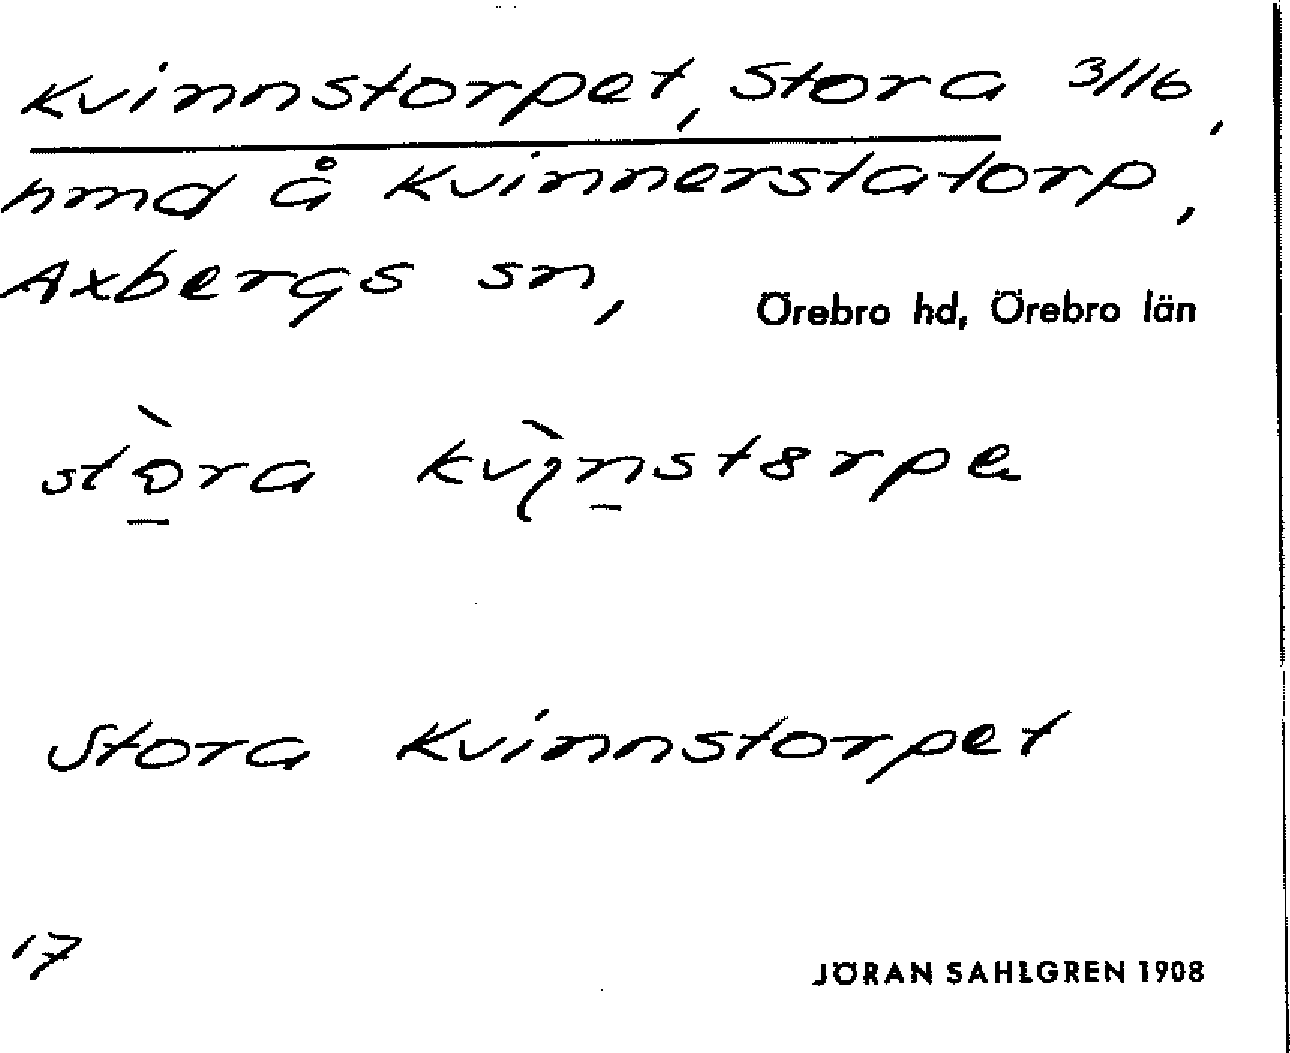 Kvinnstorpet, Stora 3/16,
hmd å Kvinnerstatorp,
Axbergs sn, Örebro hd, Örebro län
stòra kvìnstorpe
Stora Kvinnstorpet
17 JÖRAN SAHLGREN 1908